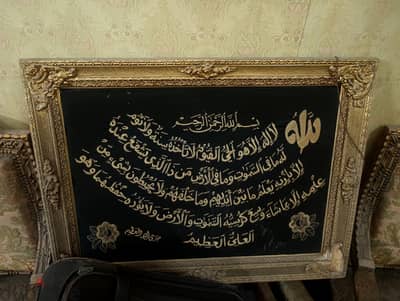 بسم الله الرحمن الرحيم
الله لا اله الا هو الحي القيوم لا تأخذه سنة ولا نوم
له ما في السموات وما في الأرض من ذا الذي يشفع عنده
إلا بإذنه يعلم ما بين أيديهم وما خلفهم ولا يحيطون بشيء من
علمه إلا بما شاء وسع كرسيه السموات والأرض ولا يؤده حفظهما وهو
العلي العظيم